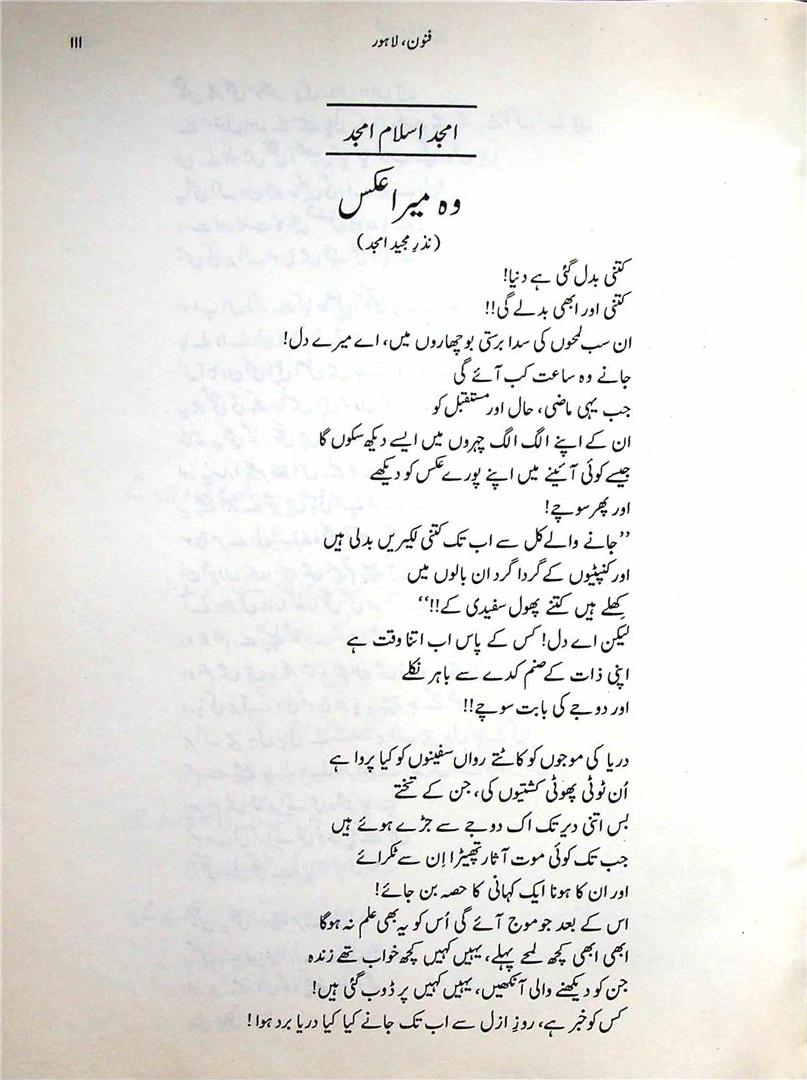 فنون، لاہور
۱۱۱
امجد اسلام امجد
وہ میرا عکس
(نذرِ مجید امجد)
کتنی بدل گئی ہے دنیا!
کتنی اور ابھی بدلے گی!!
ان سب لمحوں کی سدا برستی بوچھاروں میں، اے میرے دل!
جانے وہ ساعت کب آئے گی
جب یہی ماضی، حال اور مستقبل کو
ان کے اپنے الگ الگ چہروں میں ایسے دیکھ سکوں گا
جیسے کوئی آئینے میں اپنے پورے عکس کو دیکھے
اور پھر سوچے!
”جانے والے کل سے اب تک کتنی لکیریں بدلی ہیں
اور کنپٹیوں کے گردا گرد ان بالوں میں
کِھلے ہیں کتنے پھول سفیدی کے!!“
لیکن اے دل! کس کے پاس اب اتنا وقت ہے
اپنی ذات کے صنم کدے سے باہر نکلے
اور دوجے کی بابت سوچے!!
دریا کی موجوں کو کاٹتے رواں سفینوں کو کیا پروا ہے
اُن ٹوٹی پھوٹی کشتیوں کی، جن کے تختے
بس اتنی دیر تک اک دوجے سے جڑے ہوئے ہیں
جب تک کوئی موت آثار تھپیڑا اِن سے ٹکرائے
اور ان کا ہونا ایک کہانی کا حصہ بن جائے!
اس کے بعد جو موج آئے گی اُس کو یہ بھی علم نہ ہوگا
ابھی ابھی کچھ لمحے پہلے، یہیں کہیں کچھ خواب تھے زندہ
جن کو دیکھنے والی آنکھیں، یہیں کہیں پر ڈوب گئی ہیں!
کس کو خبر ہے، روزِ ازل سے اب تک جانے کیا کیا دریا برد ہوا!